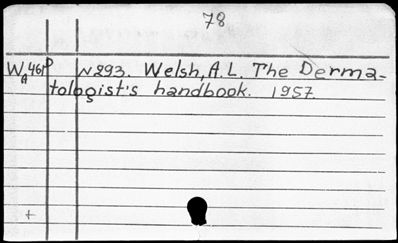 78
WA 461 D N293. Welsh, A.L. The Derma-
tologist's handbook. 1957.
+